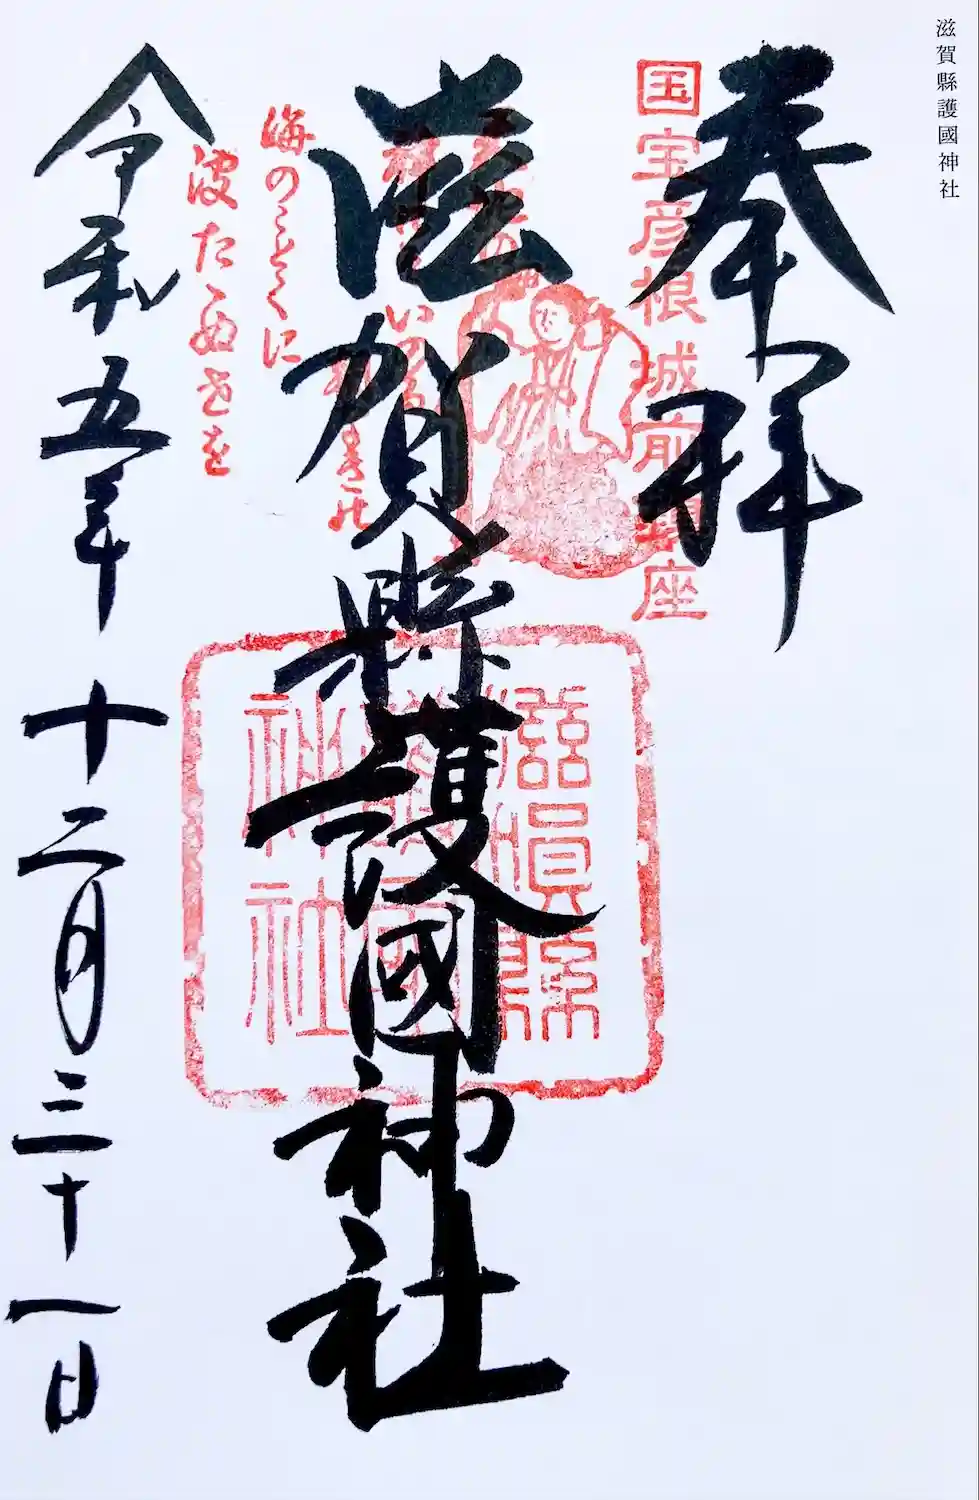 滋賀縣護國神社
奉拝
国宝彦根城前鎮座
滋賀縣護國神社
滋賀縣
護國
神社
海のことくに
波たぬ世を
令和五年十二月三十一日